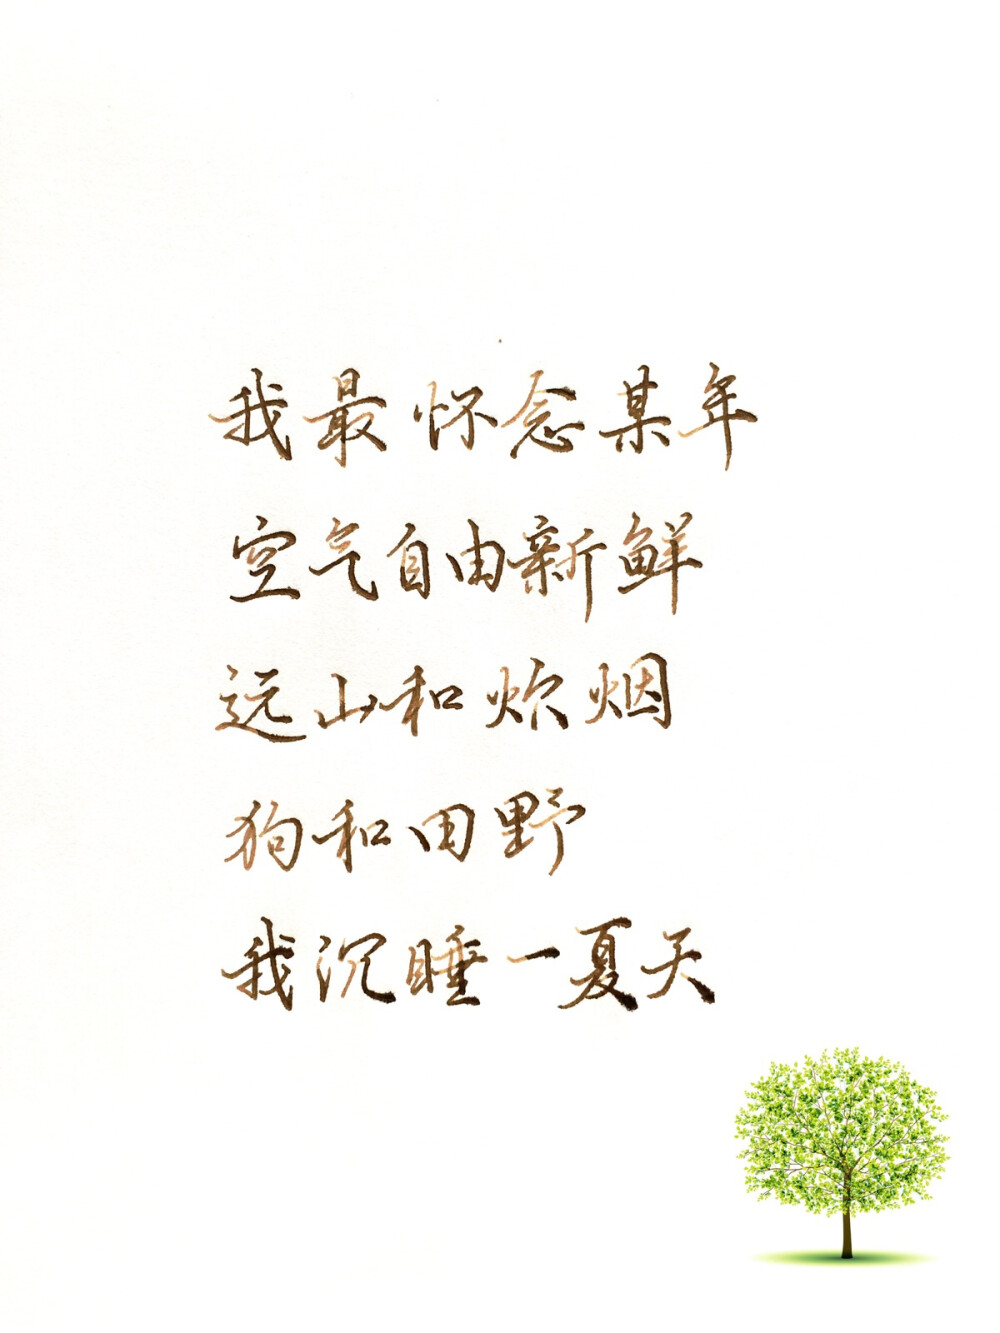 我最怀念某年
空气自由新鲜
远山和炊烟
狗和田野
我沉睡一夏天